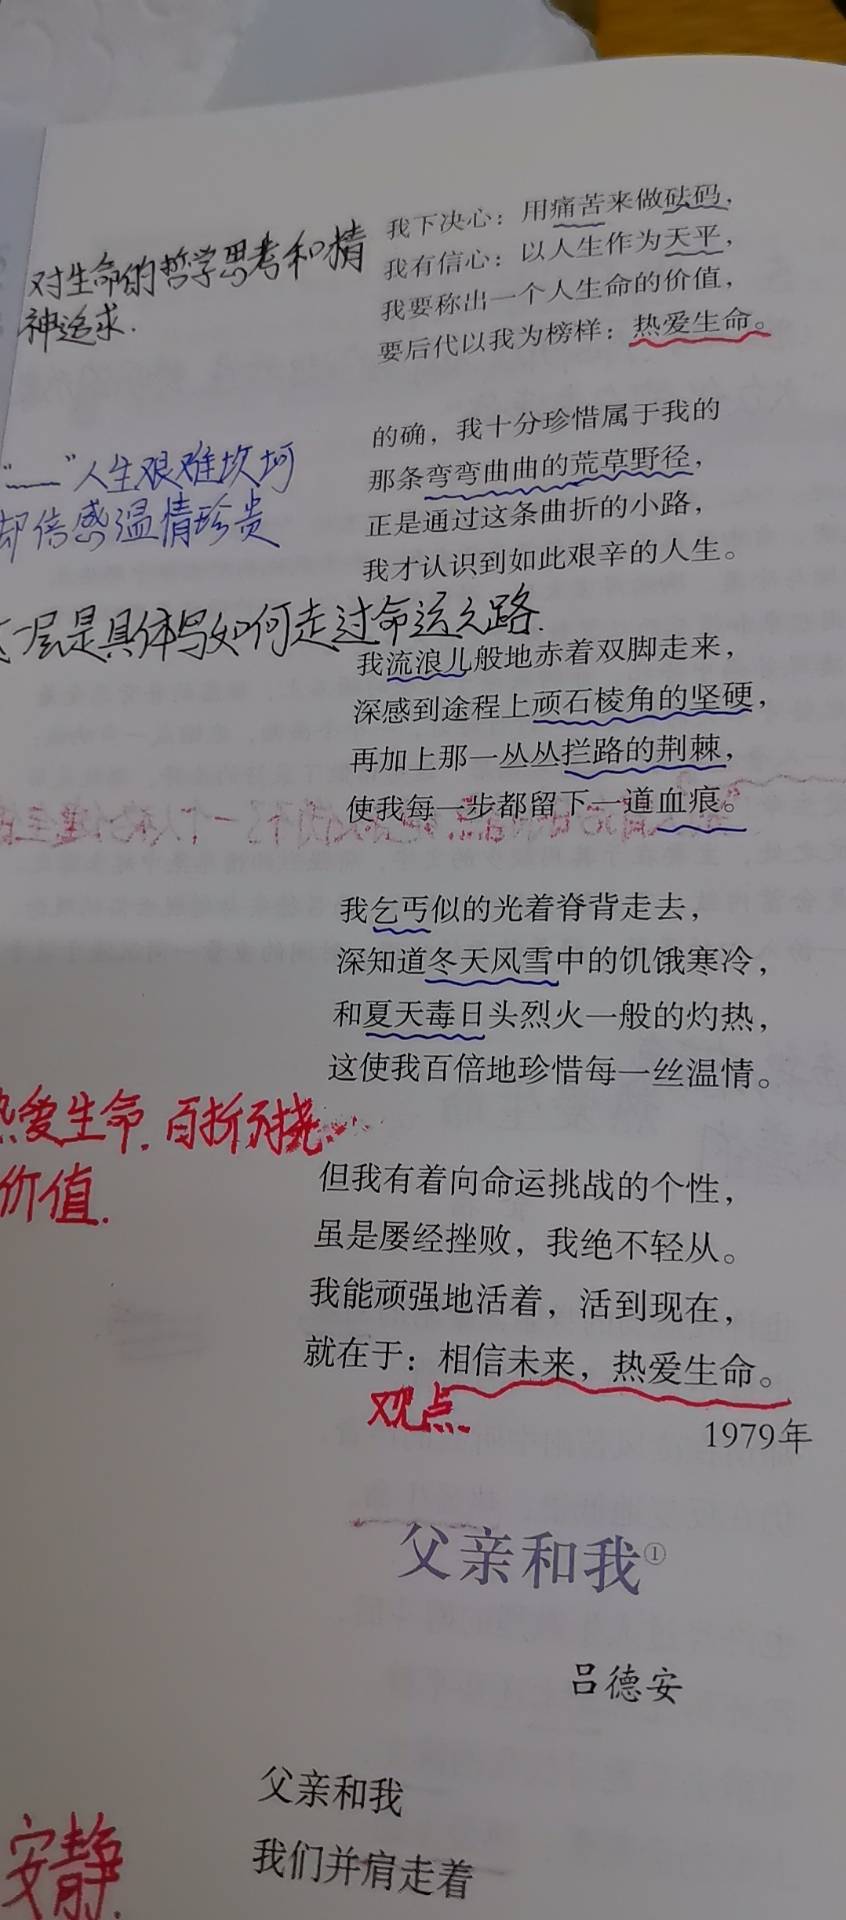 我下决心：用痛苦来做砝码，
我有信心：以人生作为天平，
我要称出一个人生命的价值，
要后代以我为榜样：热爱生命。
对生命的哲学思考和精
神追求.
的确，我十分珍惜属于我的
那条弯弯曲曲的荒草野径，
正是通过这条曲折的小路，
我才认识到如此艰辛的人生。
“﹏”人生艰难坎坷
却倍感温情珍贵
一层是具体写如何走过命运之路.
我流浪儿般地赤着双脚走来，
深感到途程上顽石棱角的坚硬，
再加上那一丛丛拦路的荆棘，
使我每一步都留下一道血痕。
我乞丐似的光着脊背走去，
深知道冬天风雪中的饥饿寒冷，
和夏天毒日头烈火一般的灼热，
这使我百倍地珍惜每一丝温情。
热爱生命.百折不挠
价值.
但我有着向命运挑战的个性，
虽是屡经挫败，我绝不轻从。
我能顽强地活着，活到现在，
就在于：相信未来，热爱生命。
观点.
1979年
父亲和我①
吕德安
父亲和我
我们并肩走着
安静.